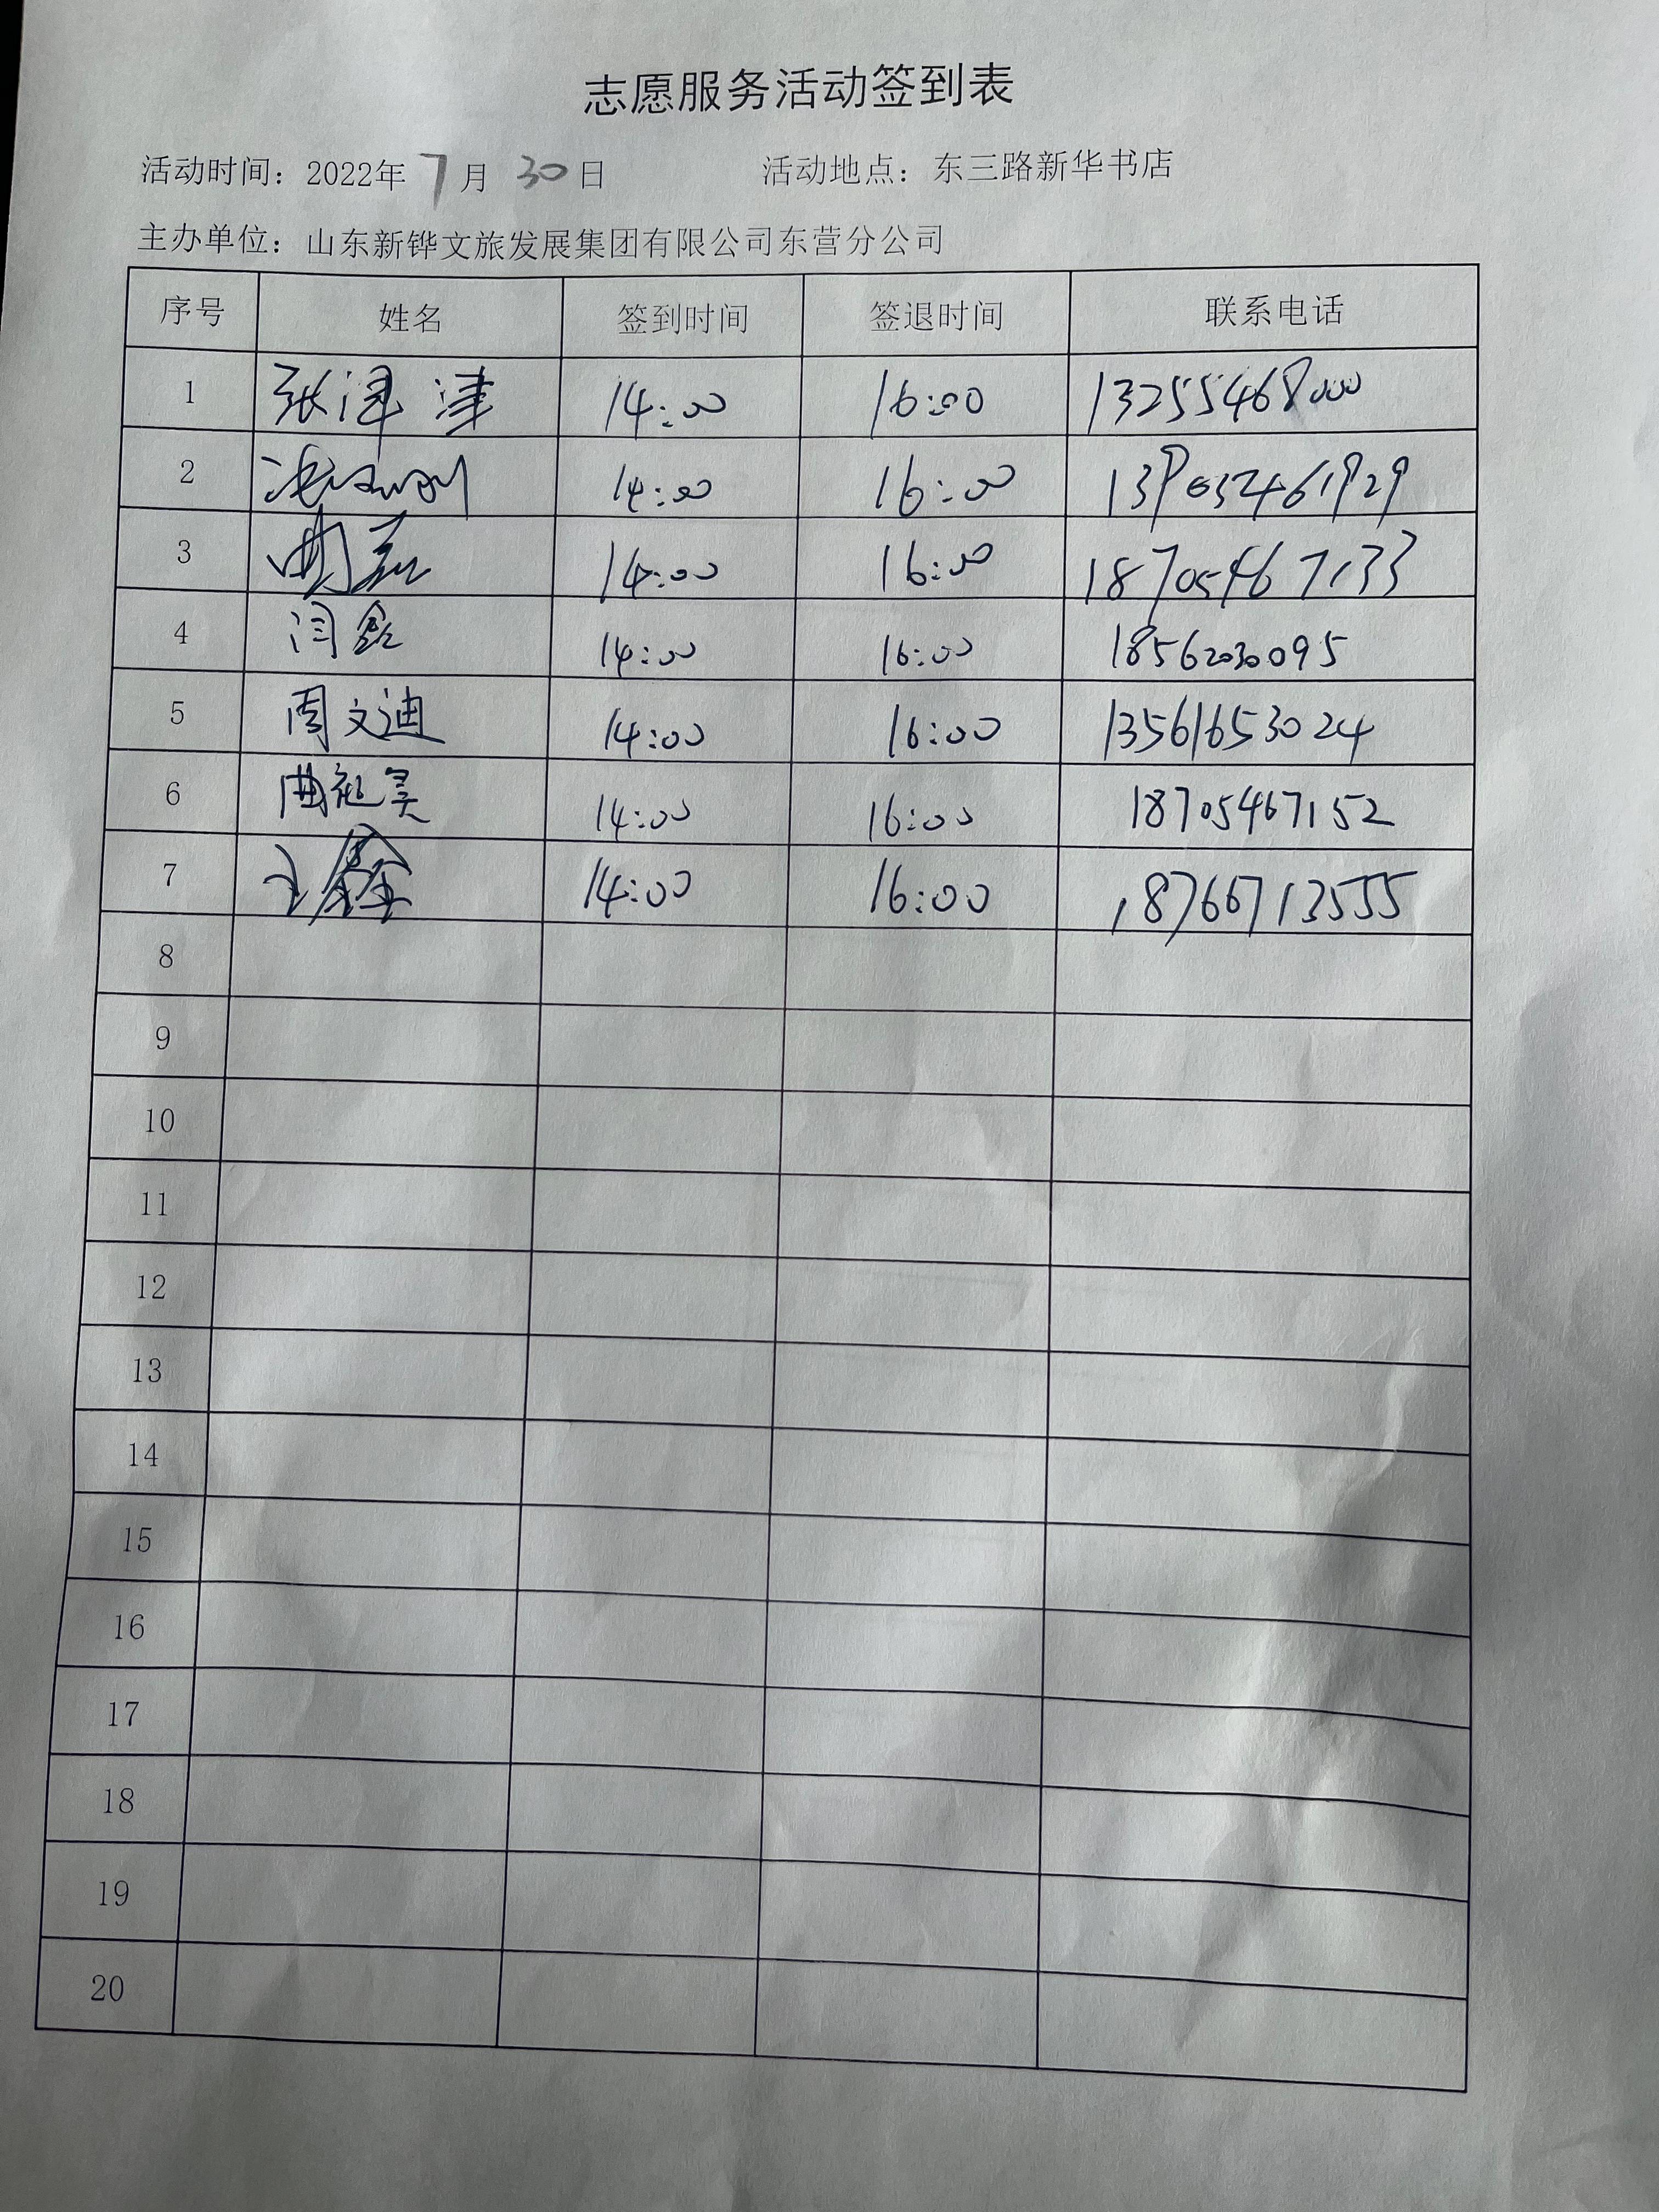 志愿服务活动签到表
活动时间：2022年 7 月 30 日 活动地点：东三路新华书店
主办单位：山东新铧文旅发展集团有限公司东营分公司
序号 姓名 签到时间 签退时间 联系电话
1 张津津 14:00 16:00 13255468000
2 14:00 16:00
3 14:00 16:00 18705467133
4 闫 14:00 16:00 18562030095
5 周文迪 14:00 16:00 13561653024
6 曲 昊 14:00 16:00 18705467152
7 王鑫 14:00 16:00 18766713555
8
9
10
11
12
13
14
15
16
17
18
19
20